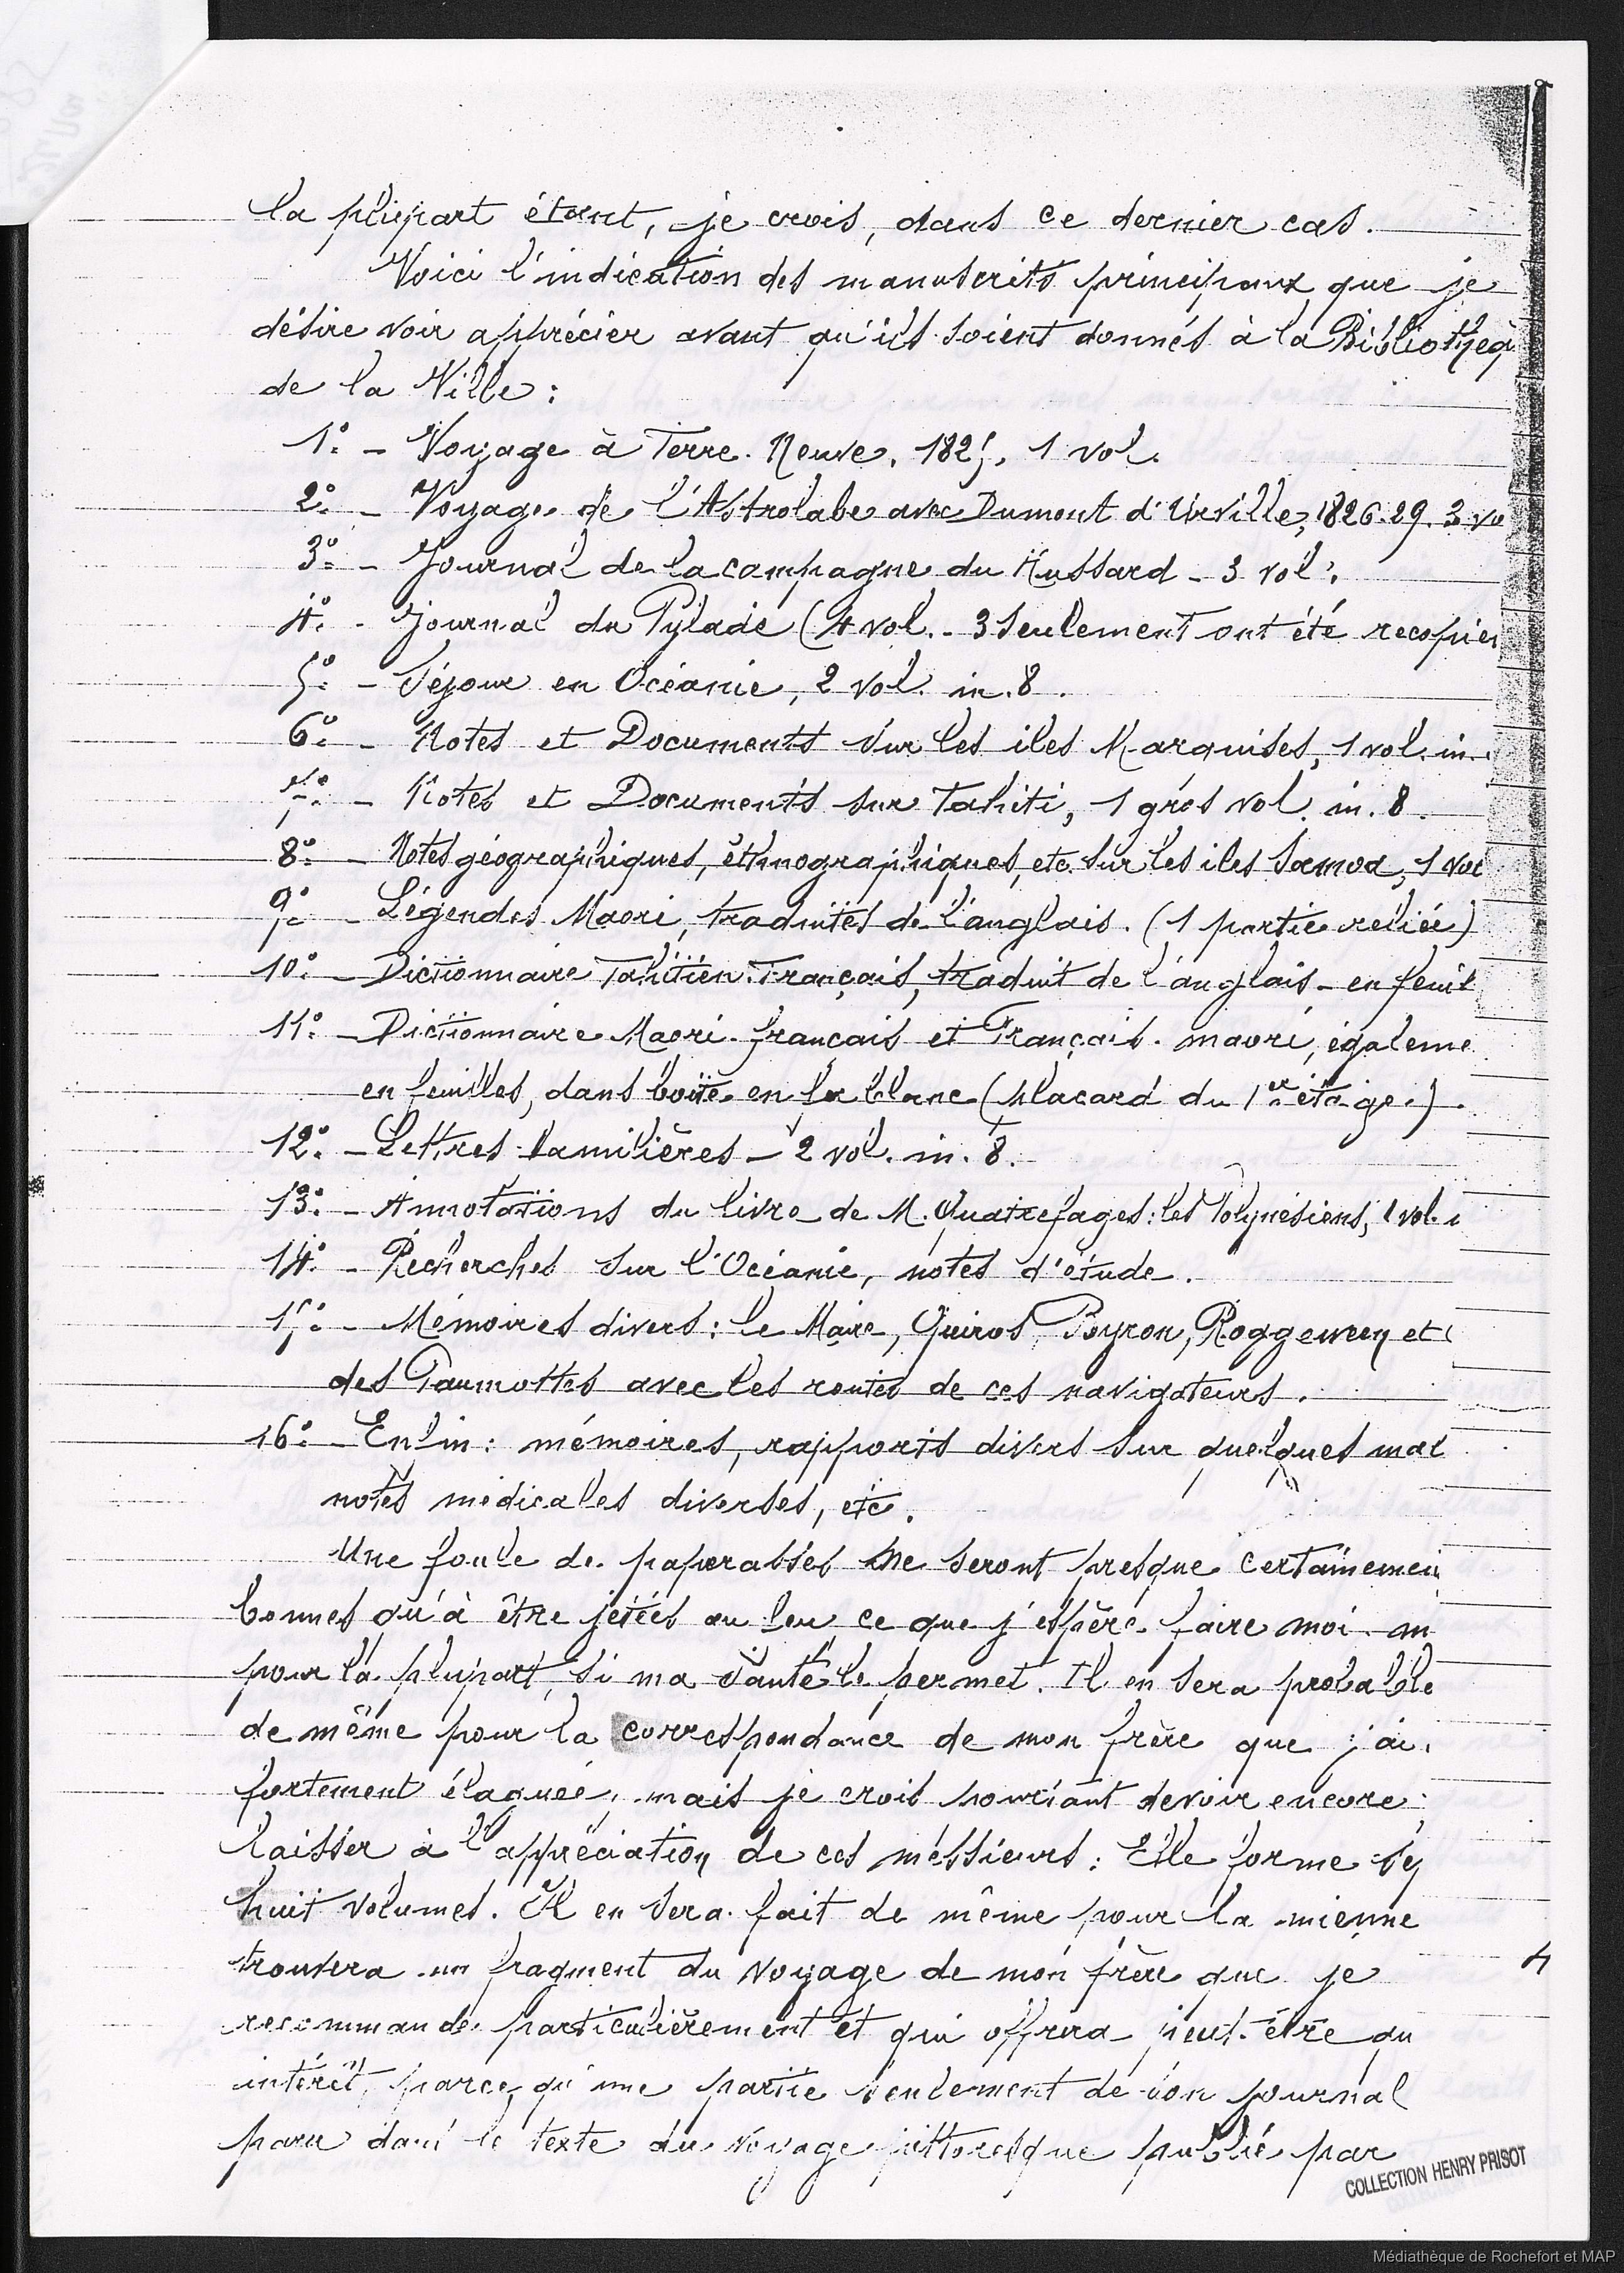 la plupart étant, je crois, dans ce dernier cas.
Voici l'indication des manuscrits principaux que je
désire voir apprécier avant qu'ils soient donnés à la Bibliothèq
de la Ville :
1º - Voyage à Terre-Neuve, 1825, 1 vol.
2º - Voyage de l'Astrolabe avec Dumont d'Urville, 1826-29. 3 vo
3º - Journal de la campagne du Hussard - 3 vol.
4º - Journal du Pylade (4 vol. - 3 seulement ont été recopiés
5º - Séjour en Océanie, 2 vol. in-8.
6º - Notes et Documents sur les iles Marquises, 1 vol. in-
7º - Notes et Documents sur Tahiti, 1 gros vol. in-8.
8º - Notes géographiques, ethnographiques, etc. sur les iles Samoa, 1 vol
9º - Légendes Maori, traduites de l'anglais. (1 partie reliée)
10º - Dictionnaire Tahitien-Français, traduit de l'anglais - en feuil
11º - Dictionnaire Maori-français et Français-maori, égaleme
en feuilles, dans boîte en fer blanc (placard du 1er étage.)
12º - Lettres familières - 2 vol. in-8.
13º - Annotations du livre de M. Quatrefages : les Polynésiens, 1 vol. i
14º - Recherches sur l'Océanie, notes d'étude.
15º - Mémoires divers : le Maire, Quiros, Byron, Roggeween et c
des Paumottes avec les routes de ces navigateurs.
16º - Enfin : mémoires, rapports divers sur quelques mal
notes médicales diverses, etc.
Une foule de paperasses ne seront presque certainemen
bonnes qu'à être jetées au feu ce que j'espère faire moi-m
pour la plupart, si ma santé le permet. Il en sera probable
de même pour la correspondance de mon frère que j'ai
fortement élaguée, mais je crois pourtant devoir encore
laisser à l'appréciation de ces messieurs : Elle forme
huit volumes. Il en sera fait de même pour la mienne
trouvera un fragment du voyage de mon frère que je
4
recommande particulièrement et qui offrira peut-être qu
intérêt, parce qu'une partie seulement de son journal
paru dans le texte du voyage pittoresque publié par
COLLECTION HENRY PRISOT
Médiathèque de Rochefort et MAP